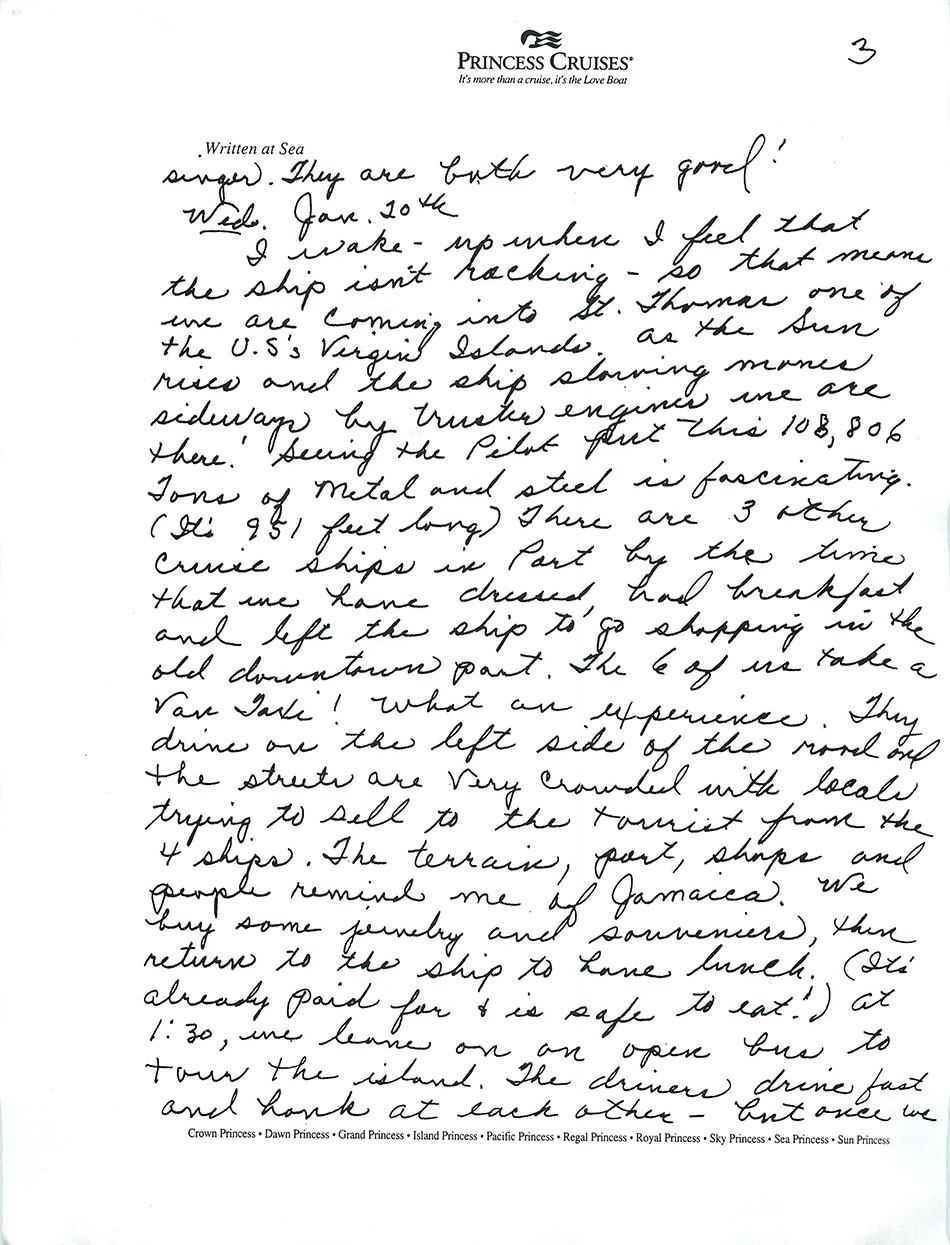 3
PRINCESS CRUISES®
It's more than a cruise, it's the Love Boat
Written at Sea
singer. They are both very good!
Wed. Jan. 20th
I wake-up when I feel that
the ship isn't rocking - so that means
we are coming into St. Thomas one of
the U.S's Virgin Islands. As the Sun
rises and the ship slowing moves
sideways by truster engines we are
there! Seeing the Pilot put this 108,806
Tons of Metal and steel is fascinating.
(It's 951 feet long) There are 3 other
cruise ships in Port by the time
that we have dressed, had breakfast
and left the ship to go shopping in the
old downtown part. The 6 of us take a
Van Taxi! What an experience. They
drive on the left side of the road and
the streets are Very Crowded with locals
trying to sell to the tourist from the
4 ships. The terrain, port, shops and
people remind me of Jamaica. We
buy some jewelry and souveniers, then
return to the ship to have lunch. (It's
already paid for & is safe to eat!) At
1:30, we leave on an open bus to
tour the island. The drivers drive fast
and honk at each other - but once we
Crown Princess • Dawn Princess • Grand Princess • Island Princess • Pacific Princess • Regal Princess • Royal Princess • Sky Princess • Sea Princess • Sun Princess